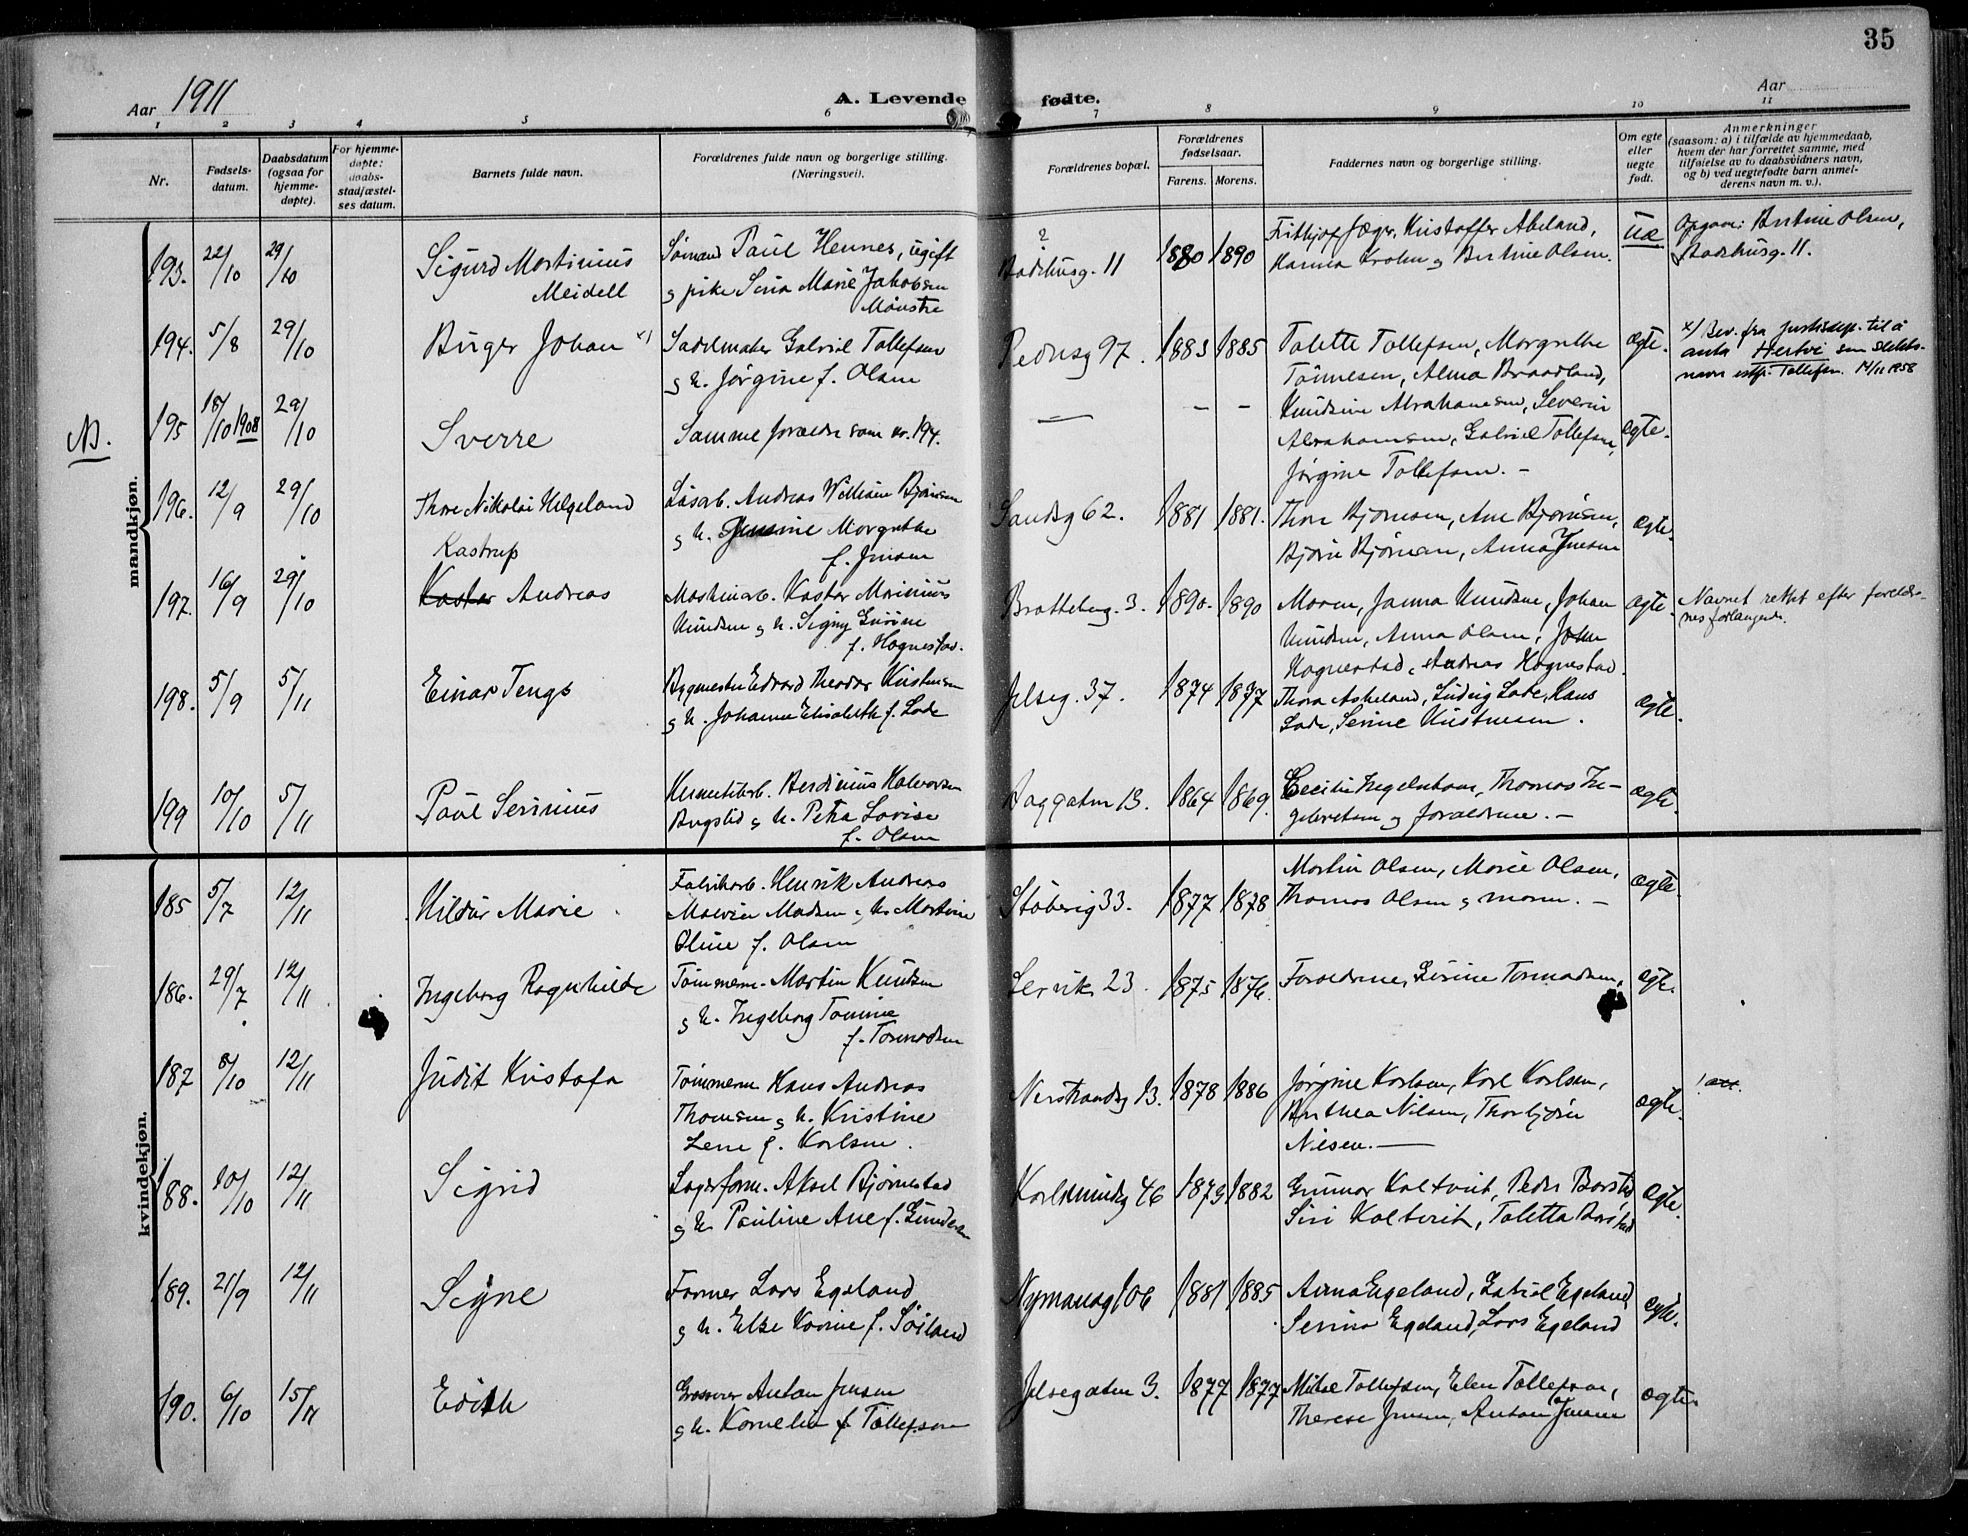 35
Aar 1911
A. Levende fødte.
Aar
1 2 3 4 5 6 7 8 9 10 11
Nr.
Fødselsdatum.
Daabsdatum (ogsaa for hjemmedøpte).
For hjemmedøpte: daabsstadfæstelses datum.
Barnets fulde navn.
Forældrenes fulde navn og borgerlige stilling. (Næringsvei).
Forældrenes bopæl.
Forældrenes fødselsaar.
Farens. Morens.
Faddernes navn og borgerlige stilling.
Om egte eller uegte født.
Anmerkninger
(saasom: a) i tilfælde av hjemmedaab,
hvem der har forrettet samme, med
tilføielse av to daabsvidners navn,
og b) ved uegtefødte barn anmelderens navn m. v.).
mandkjøn.
193. 22/10 29/10 Sigurd Martinius Meidell
Sømand Paul Hennes, ugift
g pike Sina Marie Jakobsen
?
11 1880 1890
Frithjof Jæger, Kristoffer Abeland,
Hanna Krohn g Bertine Olsen.
uæ
Opgave: Bertine Olsen,
11.
194. 5/8 29/10 Birger Johan x)
Sadelmaker Gabriel Tollefsen
g h. Jørgine f. Olsen
Pedersg 97. 1883 1885
Talette Tollefsen, Margrethe
Tønnesen, Alma Braadland,
ægte.
x) Bev. fra justisdep. til å
anta Hertvi som slekts-
navn istf. Tollefsen. 14/11 1958
N.
195 18/10 1908 29/10 Sverre
Samme forældre som nr. 194.
— – –
Knudsine Abrahamsen, Severin
Abrahamsen, Gabriel Tollefsen,
Jørgine Tollefsen. –
ægte.
196. 12/9 29/10 Thore Nikolai Helgeland
Kastrup
Løsarb. Andreas William Bjørnsen
g h. Margrethe
f. Jensen
Sandsg 62. 1881 1881.
Thore Bjørnsen, Ane Bjørnsen,
Bjørn Bjørnsen, Anna Jensen
ægte.
197. 16/9 29/10 Kaster Andreas
Maskinarb. Kaster Marinius
Knudsen g h. Signy Gurine
f. Hognestad.
3. 1890. 1890
Moren, Janna Knudsen, Johan
Knudsen, Anna Olsen, John
Hognestad, Andreas Hognestad.
ægte.
Navnet rettet efter foreldre-
nes forlangende.
198. 5/9 5/11 Einar Tengs
Bygmester Edvard Theodor Kristensen
g h. Johanne Elisabeth f. Lade
Jelseg. 37. 1874 1877
Thora Askeland, Ludvig Lade, Hans
Lade, Serine Kristensen.
ægte.
199 10/10 5/11 Paul Serinius
Hermetikarb. Halvorsen
g h. Petra Lovise
f. Olsen
Baggaten 13. 1864 1869.
Cecilie Ingebretsen, Thomas In-
gebretsen g forældrene. –
ægte.
kvindekjøn.
185 5/7 12/11 Hildur Marie
Fabrikarb. Henrik Andreas
Malvin Madsen g h. Martine
Oline f. Olsen
Støberig 33. 1877 1878
Martin Olsen, Marie Olsen,
Thomas Olsen g moren. –
ægte.
186. 29/7 12/11 Ingeborg Ragnhilde
Tømmerm. Martin Knudsen
g h. Ingeborg Tomine
f. Tormodsen
Lervik 23. 1875 1876.
Forældrene, Serine Tormodsen,
ægte.
187 8/10 12/11 Judit Kristofa
Tømmerm Hans Andreas
Thomsen g h. Kristine
Lene f. Karlsen.
Nerstrandsg 13. 1878 1886
Jørgine Karlsen, Karl Karlsen,
Berthea Nilsen, Thorbjørn
Nilsen. —
ægte.
188. 10/10 12/11 Sigrid
Lagerform. Aksel Bjørnestad
g h. Pauline Ane f. Gundersen
Karlsmindeg 46 1879 1882
Gunnar Kaltveit, Peder Barstad
Siri Kaltveit, Taletta Barstad
ægte.
189. 21/9 12/11 Signe
Former Lars Egeland
g h. Else Karine f. Soiland
Nymansg 106 1881 1885
Anna Egeland, Gabriel Egeland
Serina Egeland, Lars Egeland
ægte.
190. 6/10 15/11 Edith
Grosserer Anton Jensen
g h. Kornelia f. Tollefsen
Jelsegaten 3. 1877 1877
Mikal Tollefsen, Elen Tollefsen,
Therese Jensen, Anton Jensen
ægte.